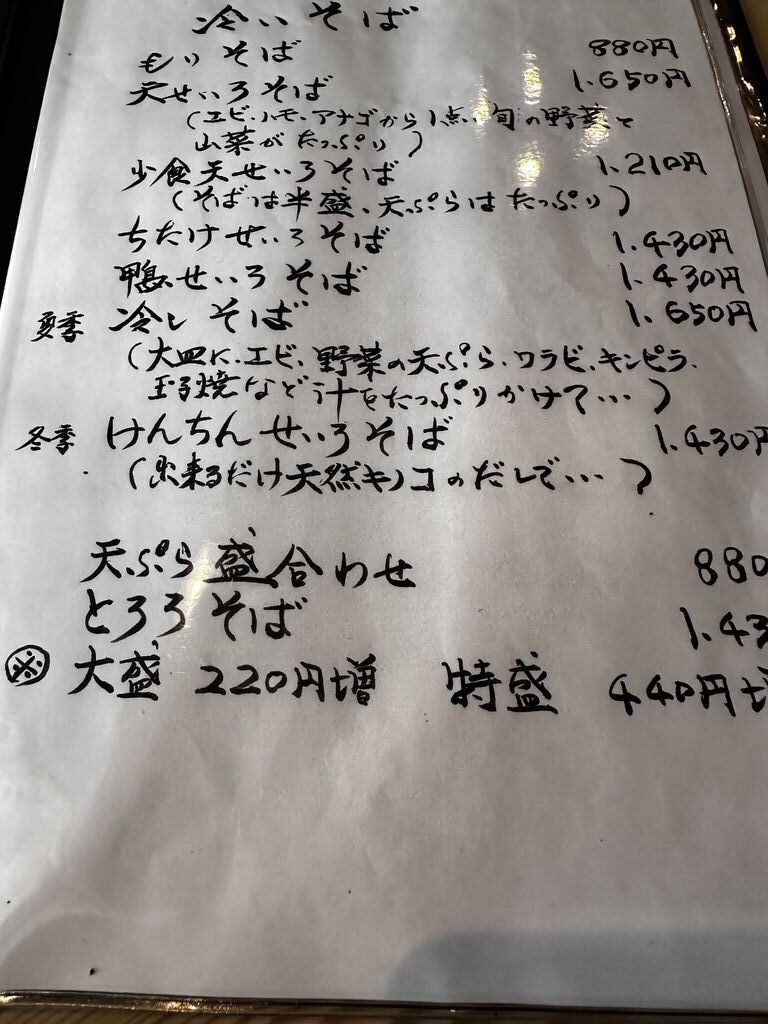 冷いそば
もりそば 880円
天せいろそば 1.650円
(エビ、ハモ、アナゴから1点、旬の野菜と
山菜がたっぷり)
少食天せいろそば 1.210円
(そばは半盛、天ぷらはたっぷり)
ちたけせいろそば 1.430円
鴨せいろそば 1.430円
夏季 冷しそば 1.650円
(大皿に、エビ、野菜の天ぷら、ワラビ、キンピラ、
玉子焼など汁をたっぷりかけて…)
冬季 けんちんせいろそば 1.430円
(出来るだけ天然キノコのだしで…)
天ぷら盛合わせ 880
とろろそば 1.43
※ 大盛 220円増 特盛 440円増